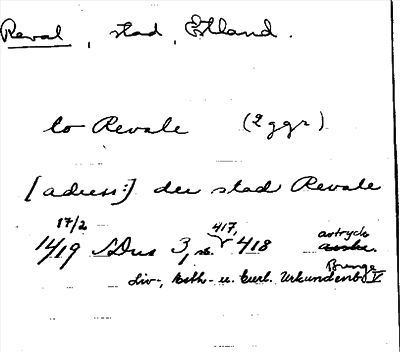 Reval, stad, Estland.
to Revale (2 ggr)
[adress:] der stad Revale
17/2 417,
1419 SDns 3, s. 418 avtryck
Bunge
Liv-, Esth- u. Curl. Urkundenb. V